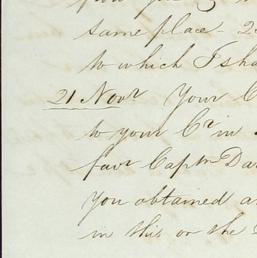 same place - 2
to which I sha
21 Novr Your C
to your Cr in
favr Captn Da
you obtained a
in this or the